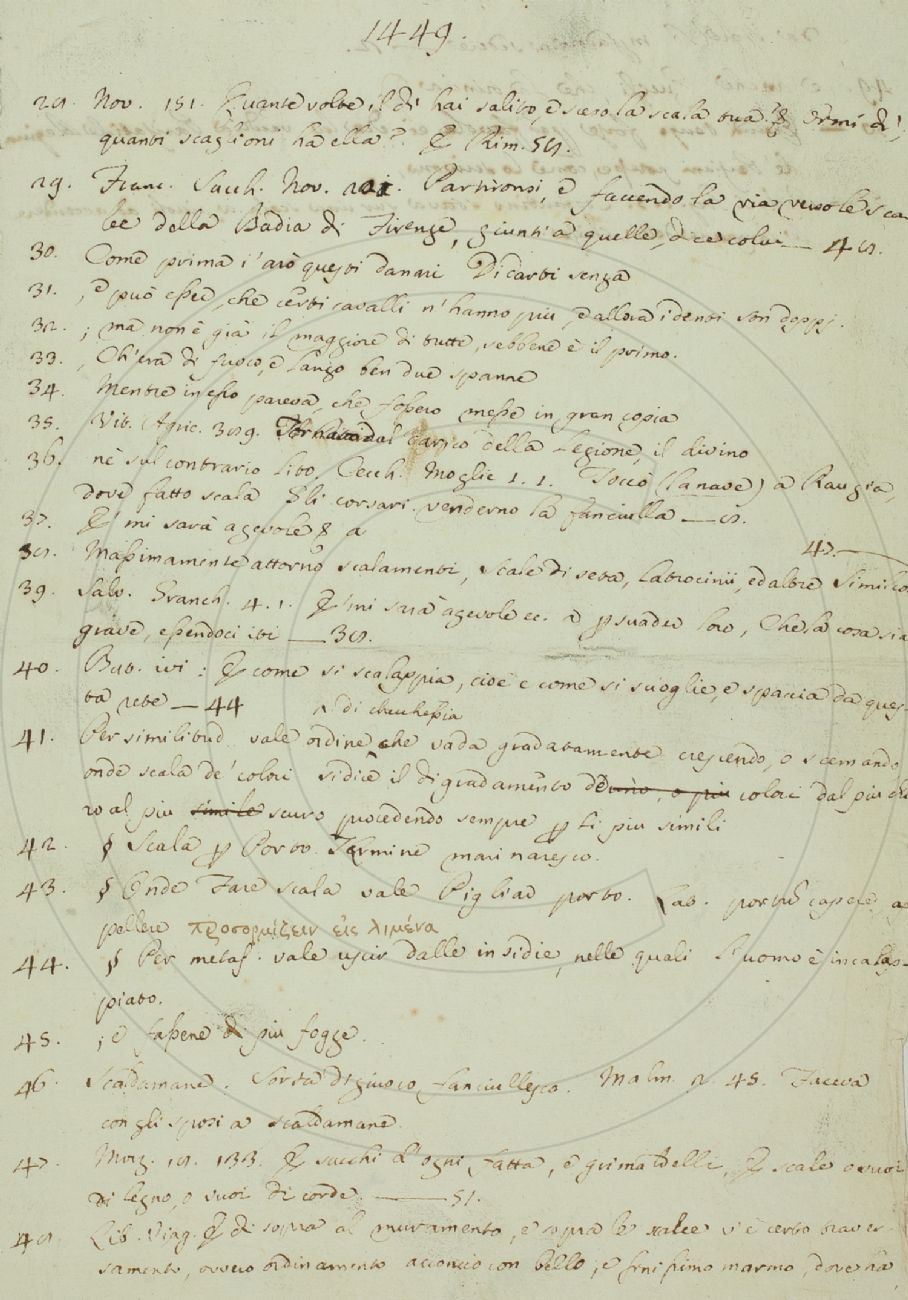 1449.
28. Nov. 151. Quante volte il dì hai salito, e sceso la scala tua? E Ormi dì,
quanti scaglioni ha ella? E Rim. 58.
29. Franc. Sacch. Nov. Partironsi, e facendo la via verso le sca-
lee della Badia di Firenze, giunti a quelle, dice colui — 48.
30. Come prima i' arò questi danari Di carti senza
31. , e può esser, che certi cavalli n'hanno più, e allora i denti son doppi.
32. ; ma non è già il maggiore di tutte, sebbene è il primo.
33. , Ch'era di fuoco, e largo ben due spanne
34. Mentre in esso pareva, che fossero messe in gran copia
35. Vit. Agric. 389. Tornato dal carico della Legione, il divino
36. nè sul contrario lito. Cecch. Moglie 1. 1. Toccò (la nave) a Raugia,
dove fatto scala Gli corsari venderno la fanciulla — 8.
37. E' mi sarà agevole a
38. Massimamente attorno scalamenti, scale di seta, latrocinii, ed altre simili co
47. —
39. Salv. Granch. 4. 1. E' mi sarà agevole ec. a psuader loro, Che la cosa sia
grave, essendoci iti — 38.
40. But. ivi: E come si scalappia, cioè e come si scioglie, e spaccia da ques-
ta rete — 44
di checchessia
41. Per similitud. vale ordine che vada gradatamente crescendo, o scemando,
onde scala de' colori si dice il digradamento de colori dal più chia
ro al più simile scuro procedendo sempre p li più simili
42. § Scala p Porto. Termine marinaresco.
43. § Onde Fare scala vale Pigliar porto. Lat. portū capere, ap
pellere προσορμίζειν εἰς λιμένα
44. § Per metaf. vale uscir dalle insidie, nelle quali l'uomo è incalap-
piato.
45. ; e fassene di più fogge.
46. Scaldamane. Sorta di giuoco fanciullesco. Malm. 2. 45. Faceva
con gli sposi a scaldamane.
47. Morg. 18. 133. E succhi d'ogni fatta, e grimaldelli, E scale o vuoi
di legno, o vuoi di corde. — 51.
48. Lib. Viag. E di sopra al muramento, e sopra le scalee v'è certo traver-
samento, ovvero ordinamento acconcio con bello, e finissimo marmo, dove ha